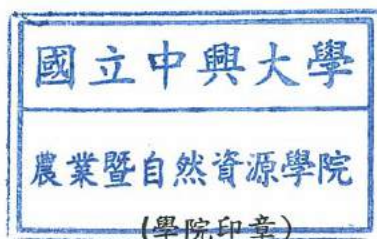 國立中興大學
農業暨自然資源學院
(學院印章)